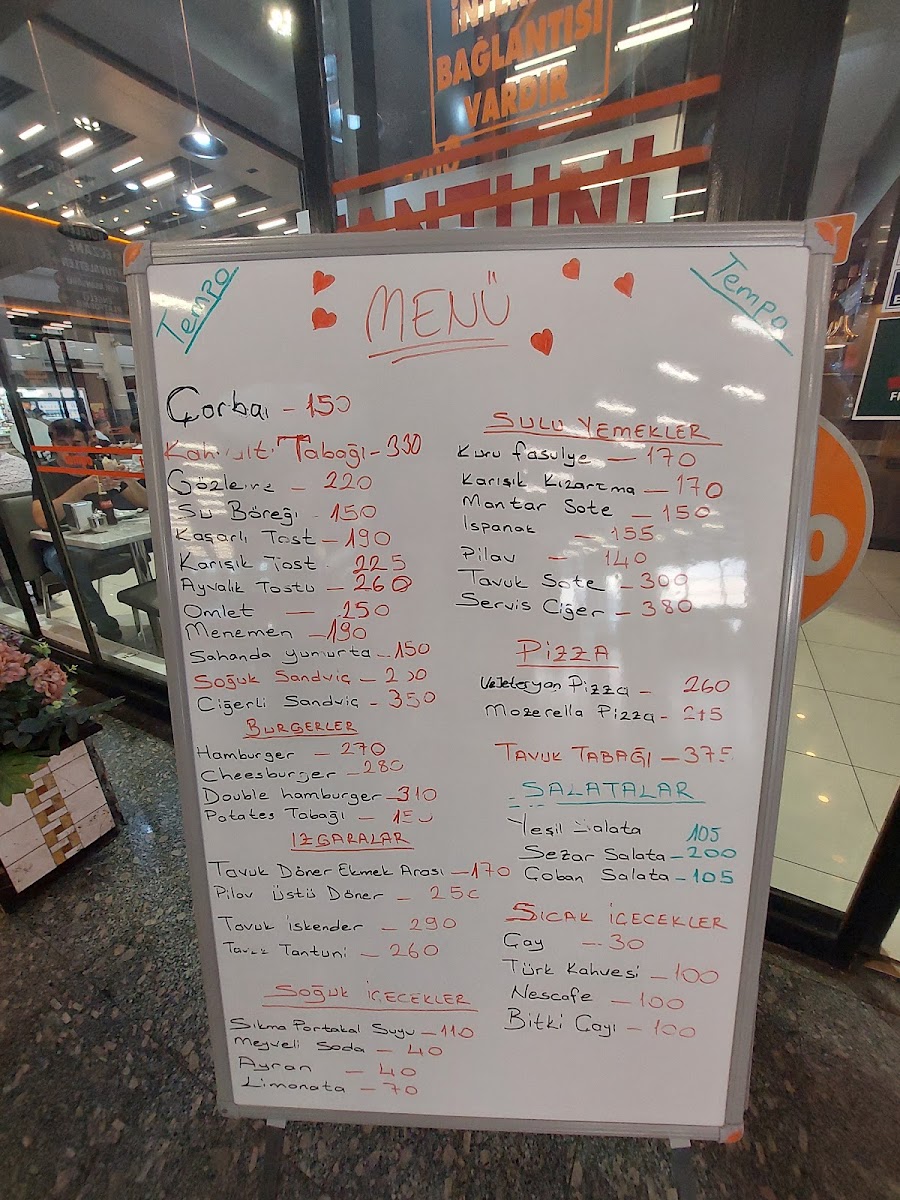 BAĞLANTISI
VARDIR
Tempo
MENÜ
Tempo
Çorba - 150
Tabağı - 330
Gözleme - 220
Su Böreği - 150
Kaşarlı Tost - 190
Karışık Tost 225
Ayvalık Tostu - 260
Omlet - 250
Menemen - 190
Sahanda yumurta - 150
Soğuk Sandviç - 200
Ciğerli Sandviç - 350
BURGERLER
Hamburger - 270
Cheesburger - 280
Double hamburger - 310
Potates Tabağı -
IZGARALAR
Tavuk Döner Ekmek Arası - 170
Pilav Üstü Döner - 250
Tavuk iskender - 290
Tavuk Tantuni - 260
SOĞUK İÇECEKLER
Sıkma Portakal Suyu - 110
Meyveli Soda - 40
Ayran - 40
Limonata - 70
SULU YEMEKLER
Kuru fasulye - 170
Karışık Kızartma - 170
Mantar Sote - 150
Ispanak - 155
Pilav - 140
Tavuk Sote - 300
Servis Ciğer - 380
PİZZA
Vejeteryan Pizza - 260
Mozerella Pizza -
TAVUK TABAĞI - 375
SALATALAR
Yeşil Salata 105
Sezar Salata - 200
Çoban Salata - 105
SICAK İÇECEKLER
Çay - 30
Türk Kahvesi - 100
Nescafe - 100
Bitki Çayı - 100